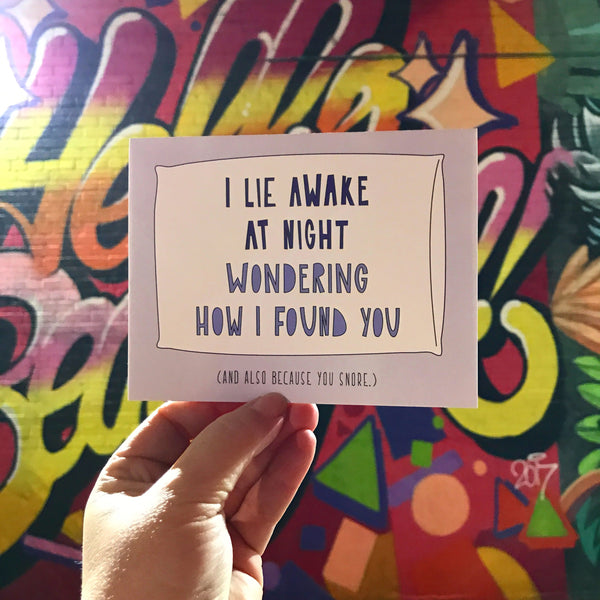 Hello
I LIE AWAKE
AT NIGHT
WONDERING
HOW I FOUND YOU
(AND ALSO BECAUSE YOU SNORE.)
2017